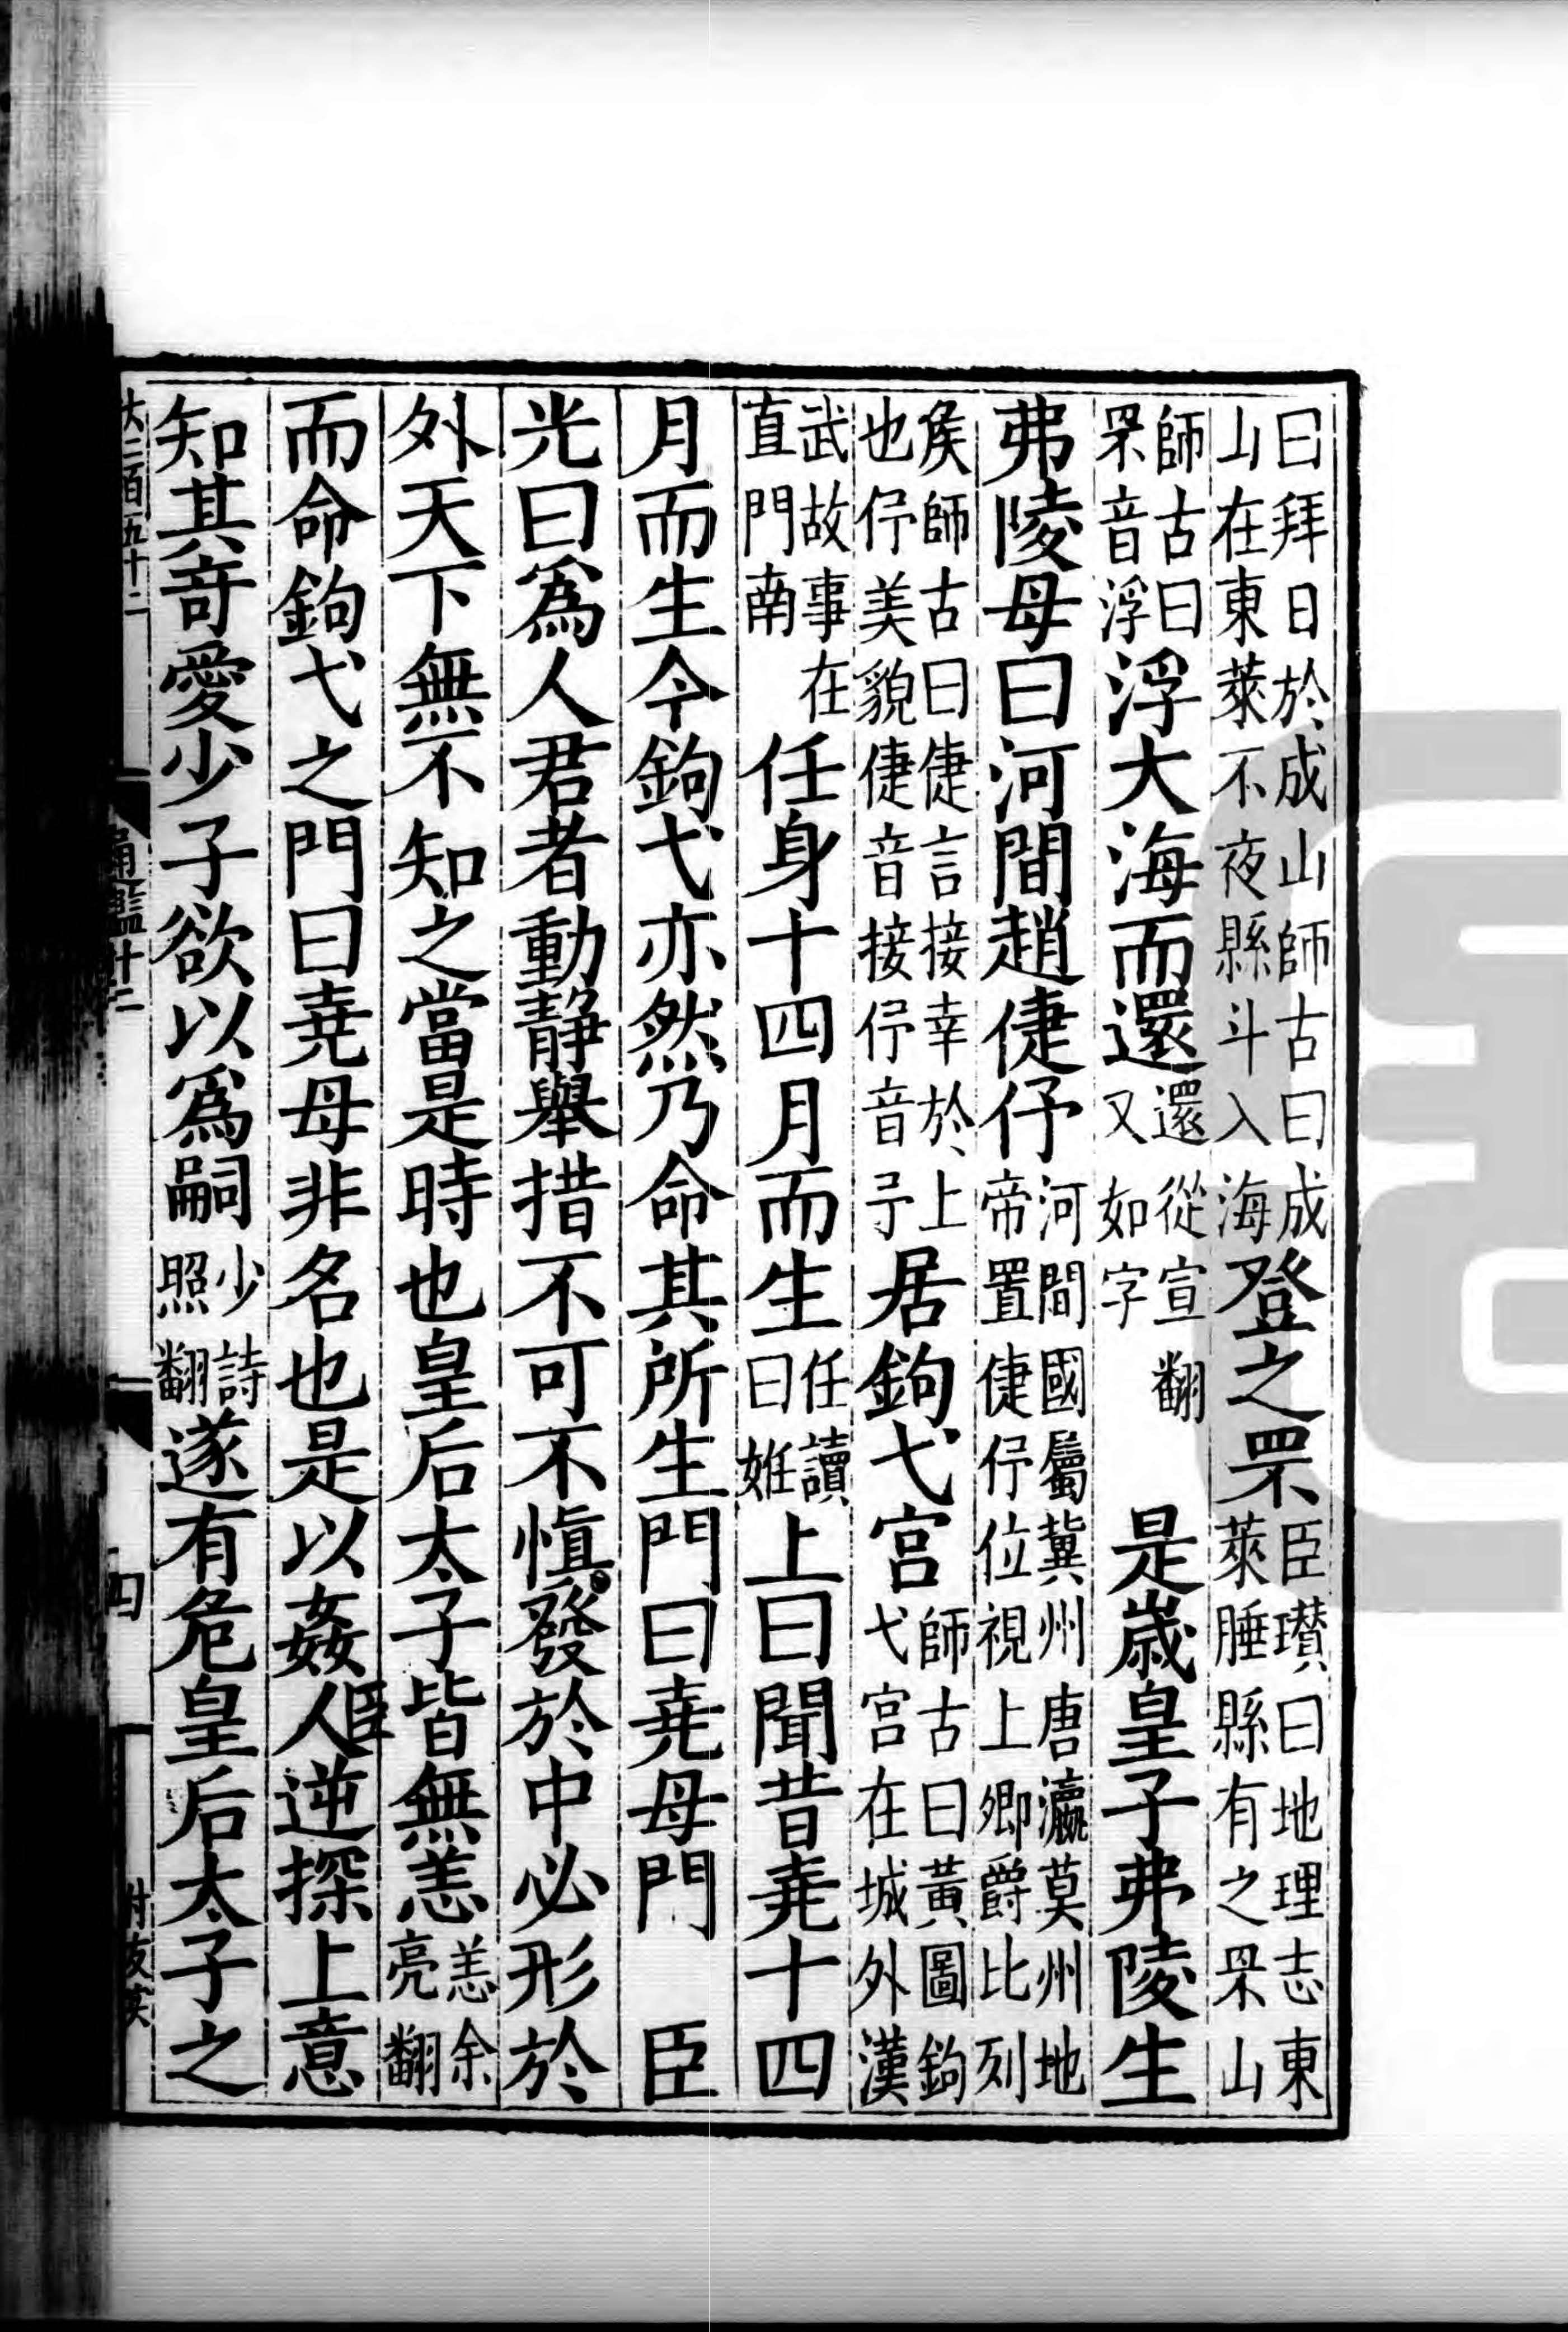 曰拜日於成山師古曰成山在東萊不夜縣斗入海登之罘臣瓚曰地理志東萊腄縣有之罘山
師古曰罘音浮浮大海而還還從宣翻又如字是歲皇子弗陵生
弗陵母曰河間趙倢伃河間國屬冀州唐瀛莫州地帝置倢伃位視上卿爵比列
侯師古曰倢言接幸於上也伃美貌倢音接伃音予居鉤弋宮師古曰黃圖鉤弋宮在城外漢
武故事在直門門南任身十四月而生任讀曰妊上曰聞昔堯十四
月而生今鉤弋亦然乃命其所生門曰堯母門 臣
光曰為人君者動靜舉措不可不慎發於中必形於
外天下無不知之當是時也皇后太子皆無恙恙余亮翻
而命鉤弋之門曰堯母非名也是以姦人臣逆探上意
知其奇愛少子欲以為嗣少詩照翻遂有危皇后太子之
大二百五十二 通鑑廿二 四